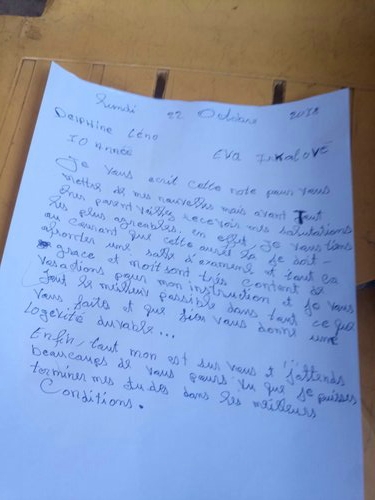 Lundi 22 Octobre 2018
Delphine Léno
10 Année Eva
Je vous ecrit cette note pour vous
mettre de mes nouvelles mais avant Tout
chers parent veilles recevois mes salutations
les plus agreables. en effet, Je vous tiens
au courant que cette année là je doit
afronter une salle d'examen et tout ça
grace et moit sont très content de
vos actions pour mon instruction et Je vous
Tout le meilleur possible dans tout ce que
vous faits et que vous donne une
logévité durable...
Enfin, tout mon est sur vous et j'attends
beaucoups de vous pours vu que je puisses
terminer mes etudes dans les meilleurs
Conditions.